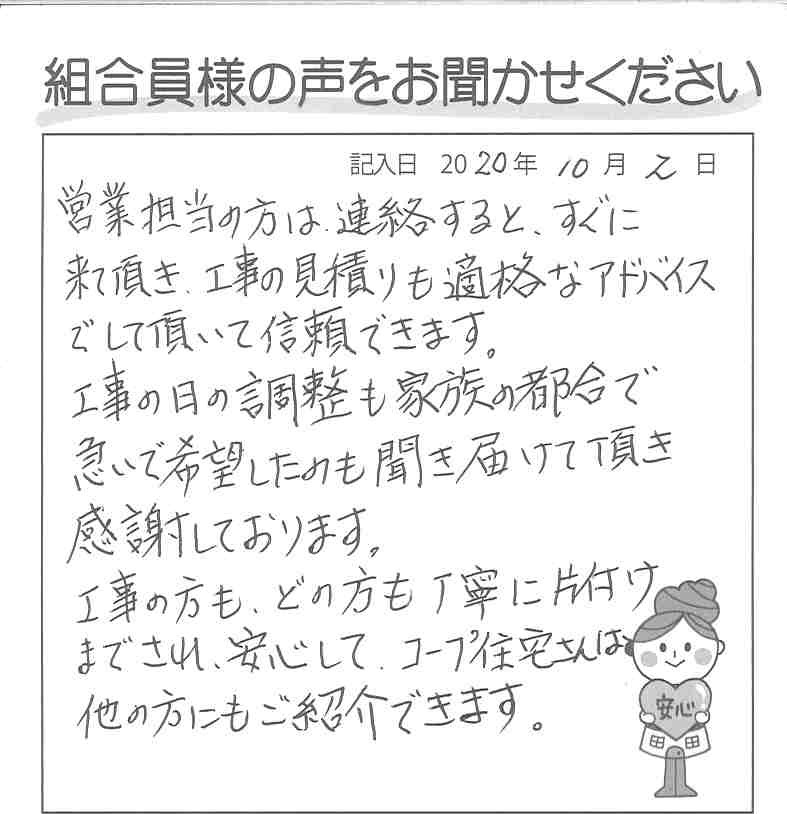 組合員様の声をお聞かせください
記入日 2020年 10月 2日
営業担当の方は、連絡すると、すぐに
来て頂き、工事の見積りも適格なアドバイス
でして頂いて信頼できます。
工事の日の調整も家族の都合で
急いで希望したのも聞き届けて頂き
感謝しております。
工事の方も、どの方も丁寧に片付け
までされ、安心して、コープ住宅さんは
他の方にもご紹介できます。
安心